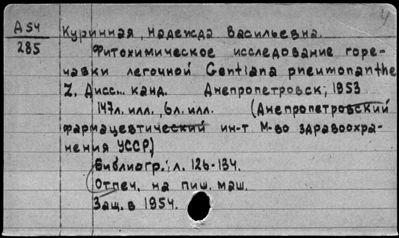 А54
285
Куринная, Надежда Васильевна.
Фитохимическое исследование горе-
чавки легочной Gentiana pneumonanthe
Z. Дисс... канд. Днепропетровск, 1953
147л. илл., 6л. илл. (Днепропетровский
фармацевтический ин-т М-во здравоохра-
нения УССР)
Библиогр.: л. 126-134.
Отпеч. на пиш. маш.
Защ. в 1954.